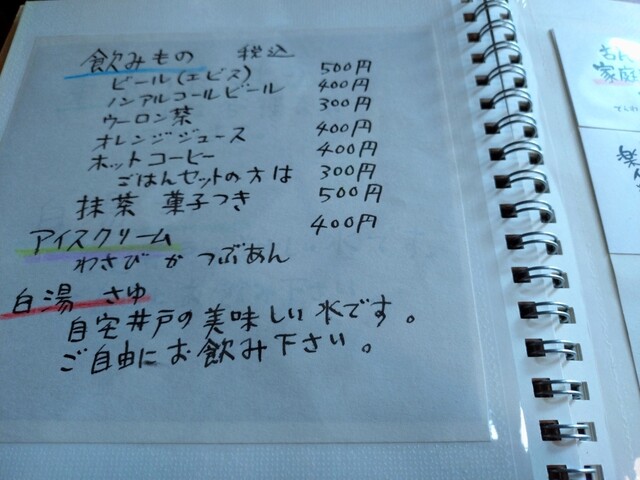 飲みもの 税込
ビール(エビス) 500円
ノンアルコールビール 400円
ウーロン茶 300円
オレンジジュース 400円
ホットコーヒー 400円
ごはんセットの方は 300円
抹茶 菓子つき 500円
アイスクリーム 400円
わさび か つぶあん
白湯 さゆ
自宅井戸の美味しい水です。
ご自由にお飲み下さい。
家庭
楽